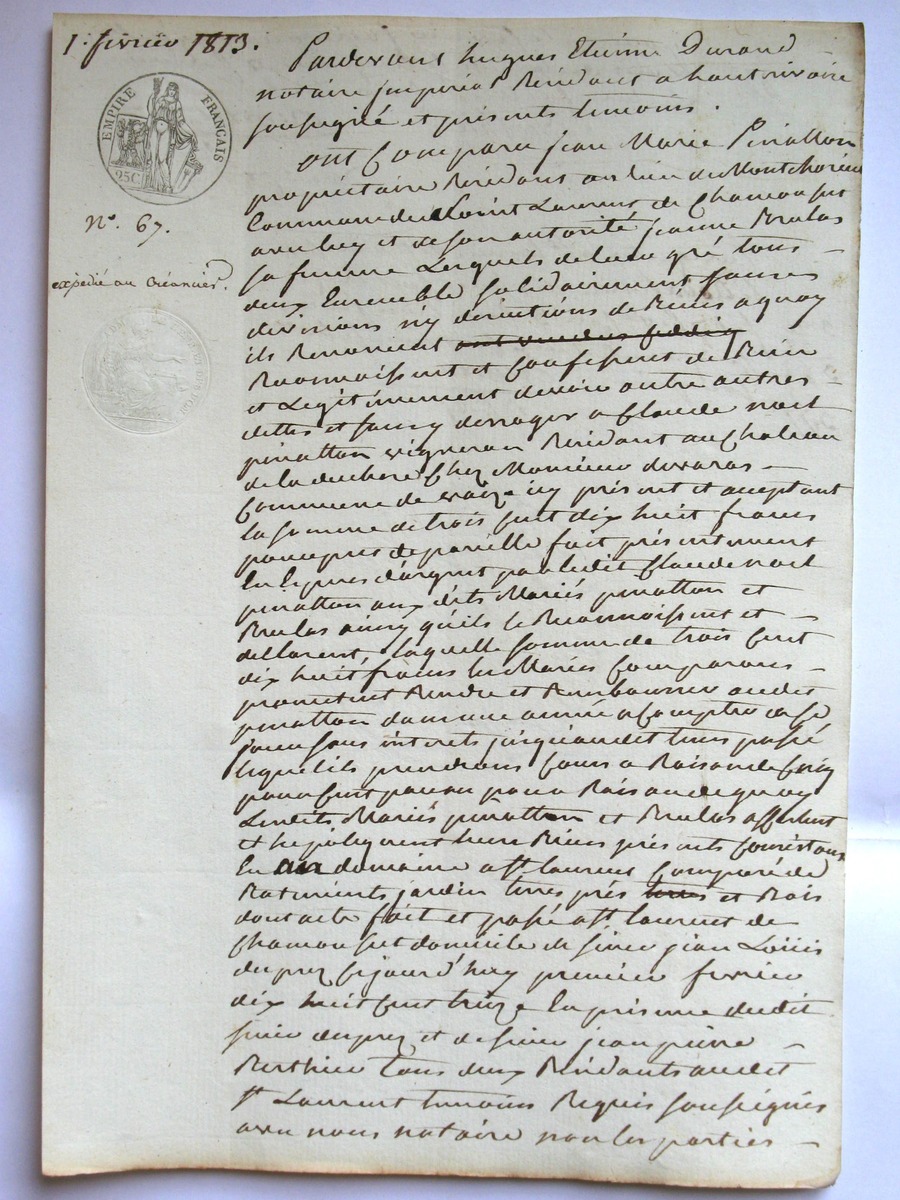 1. fevrier 1813.
EMPIRE FRANÇAIS
25C
N.º 67.
expédié au Créancier.
Pardevant hugues Etienne Durand
notaire imperial Résidant a hautrivoire
soussigné et présents temoins.
ont Comparu jean Marie Pinatton
propriétaire Résidant au lieu du Montchorin
Commune de Saint Laurent de Chamousset
avec luy et de son autorité jeanne Brulas
sa femme Lesquels de leur gré tous
deux Ensemble solidairement sans
divisions ny discutions de Biens a quoy
ils Renoncent
Reconnaissent et Confessent de Bien
et Legitimement devoir entre autres
dettes et sans y deroger a Claude noël
pinatton vigneron Résidant au Chateau
de la duchere Chez Monsieur devaras
Commune de vaize icy présent et acceptant
la somme de trois Cent dix huit francs
pour pret de pareille fait présentement
En Espèces d'argent par ledit Claude noël
pinatton aux dits Mariés pinatton et
Brulas ainsy qu'ils le Reconnoissent et
déllarent, laquelle somme de trois Cent
dix huit francs les Mariés Comparans
promettent Rendre et Rembourser audit
pinatton dans une année a Compter de ce
jour sans interets jusqu'audit tems passé
lequel ils prendront Cours a Raison de Cinq
pour Cent par an pour a Raison de quoy
Lesdits Mariés pinatton et Brulas affectent
et hypotequent leurs Biens présents Consistants
En un domaine a St laurent Composé de
Batiments jardin terres prés et Bois
dont acte fait et passé a St laurent de
Chamousset domicile de sieur jean Louis
duprez Cejourd'huy premier fevrier
dix huit Cent treize En présence dudit
sieur duprez et de sieur jean pierre
Berthier tous deux Résidants audit
St Laurent temoins Requis soussignés
avec nous notaire non les parties